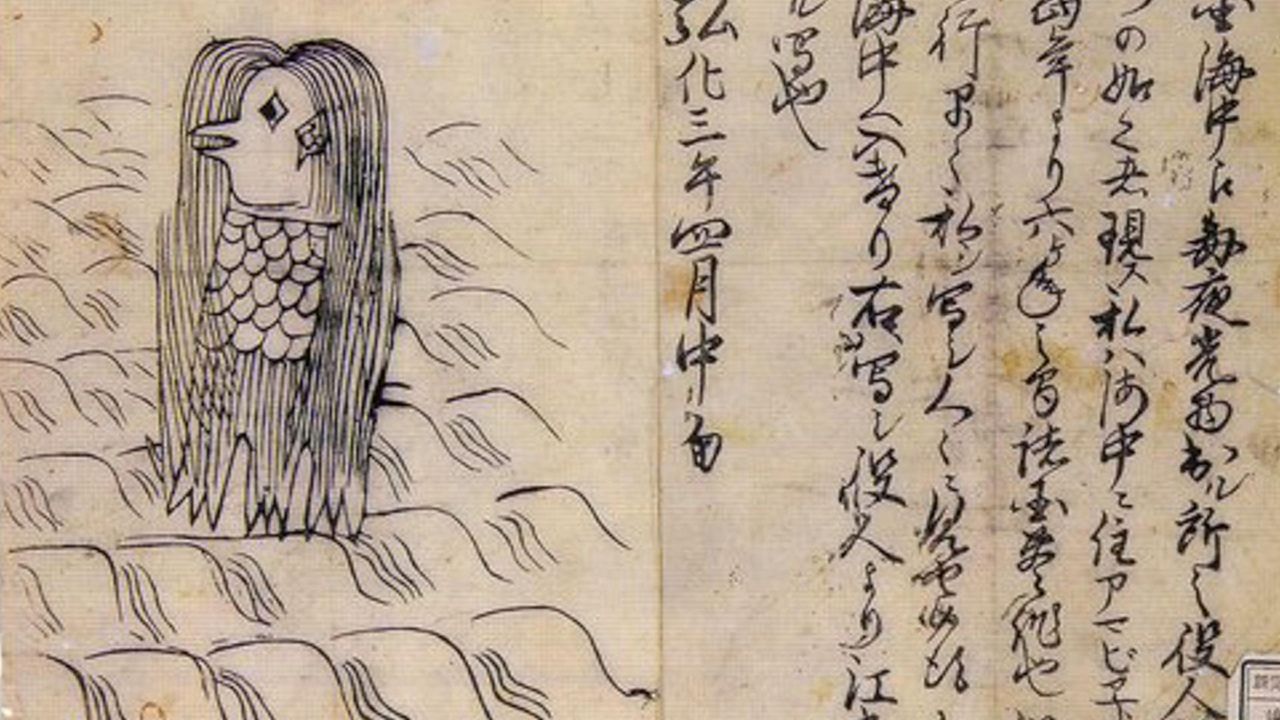 国海中え毎夜光物出ル所之役人
づの如く者現ス私ハ海中ニ住アマビヱ
当年より六ヶ年之間諸国豊作也
行早々私シ写シ人々ニ見セ候得
海中へ入けり右写シ役人より江
ル写也
弘化三年四月中旬